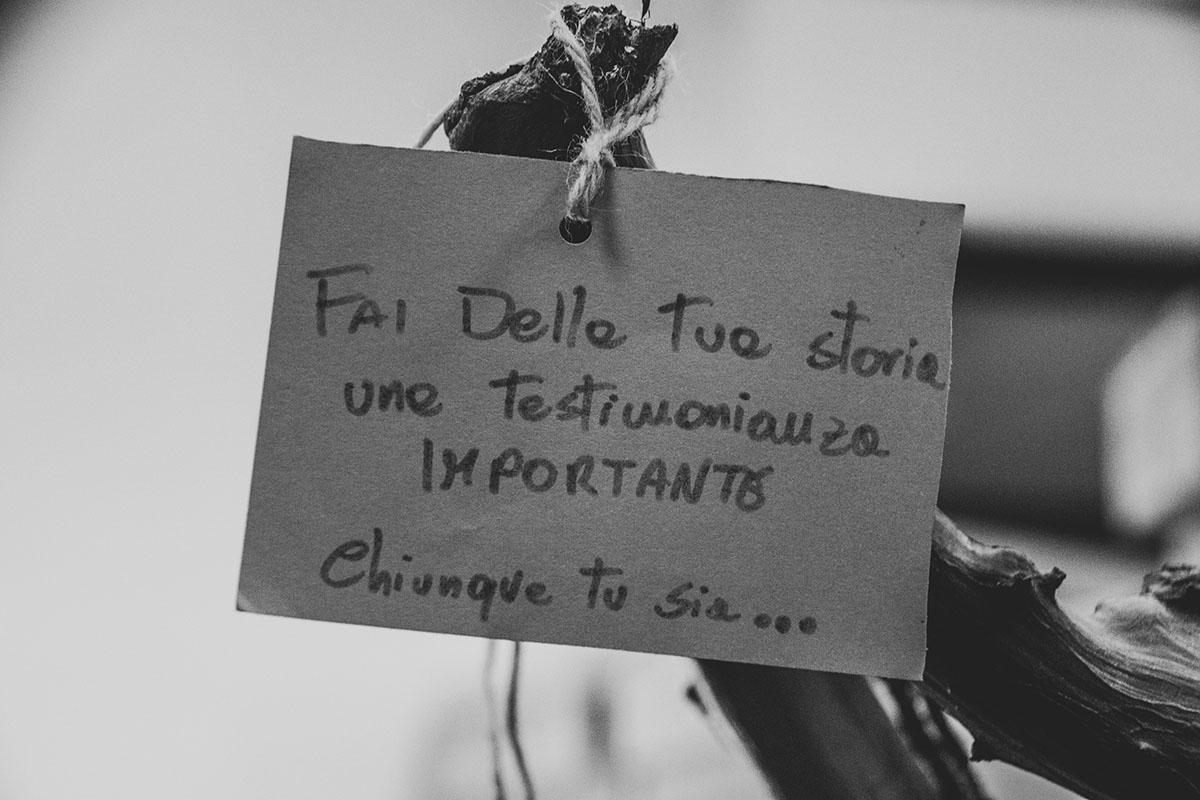 FAI Della Tua storia
una testimonianza
IMPORTANTE
Chiunque tu sia...